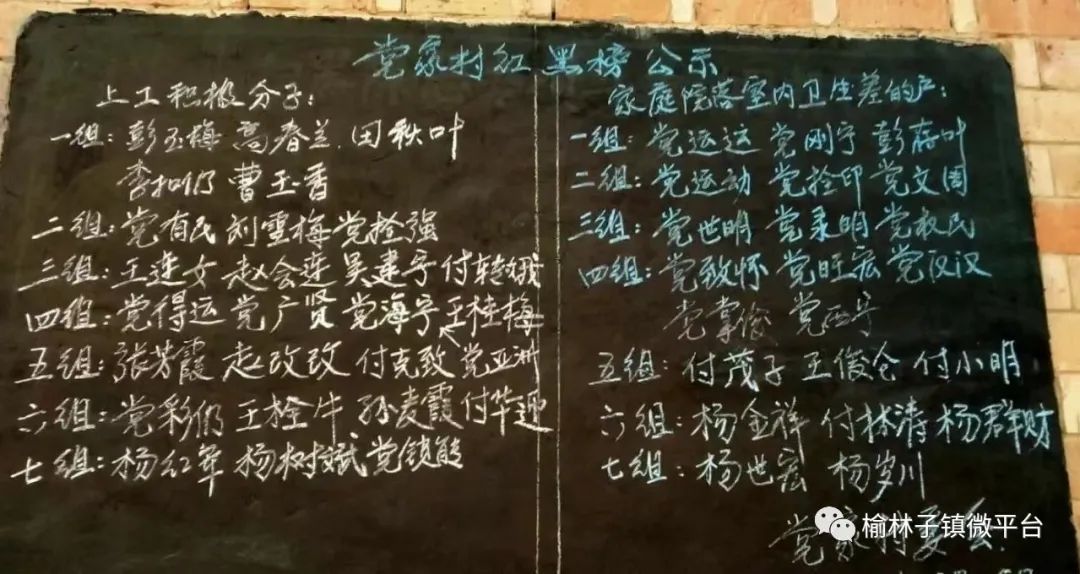 党家村红黑榜公示
上工积极分子:
一组: 彭玉梅 高春兰 田秋叶
李扣仍 曹玉香
二组: 党有民 刘雪梅 党拴强
三组: 王连女 赵会莲 吴建宁 付转娥
四组: 党得运 党广贤 党海宁 王桂梅
五组: 张芳霞 赵改改 付克致 党亚洲
六组: 党彩仍 王栓牛 孙麦霞 付华迎
七组: 杨红军 杨树斌 党锁熊
家庭院落室内卫生差的户:
一组: 党运运 党刚宁 彭存叶
二组: 党运动 党拴印 党文周
三组: 党世明 党录明 党权民
四组: 党致怀 党旺宏 党汉汉
党掌俊 党西宁
五组: 付茂子 王俊仓 付小明
六组: 杨金祥 付林涛 杨群财
七组: 杨世宏 杨岁川
党家村委会
榆林子镇微平台